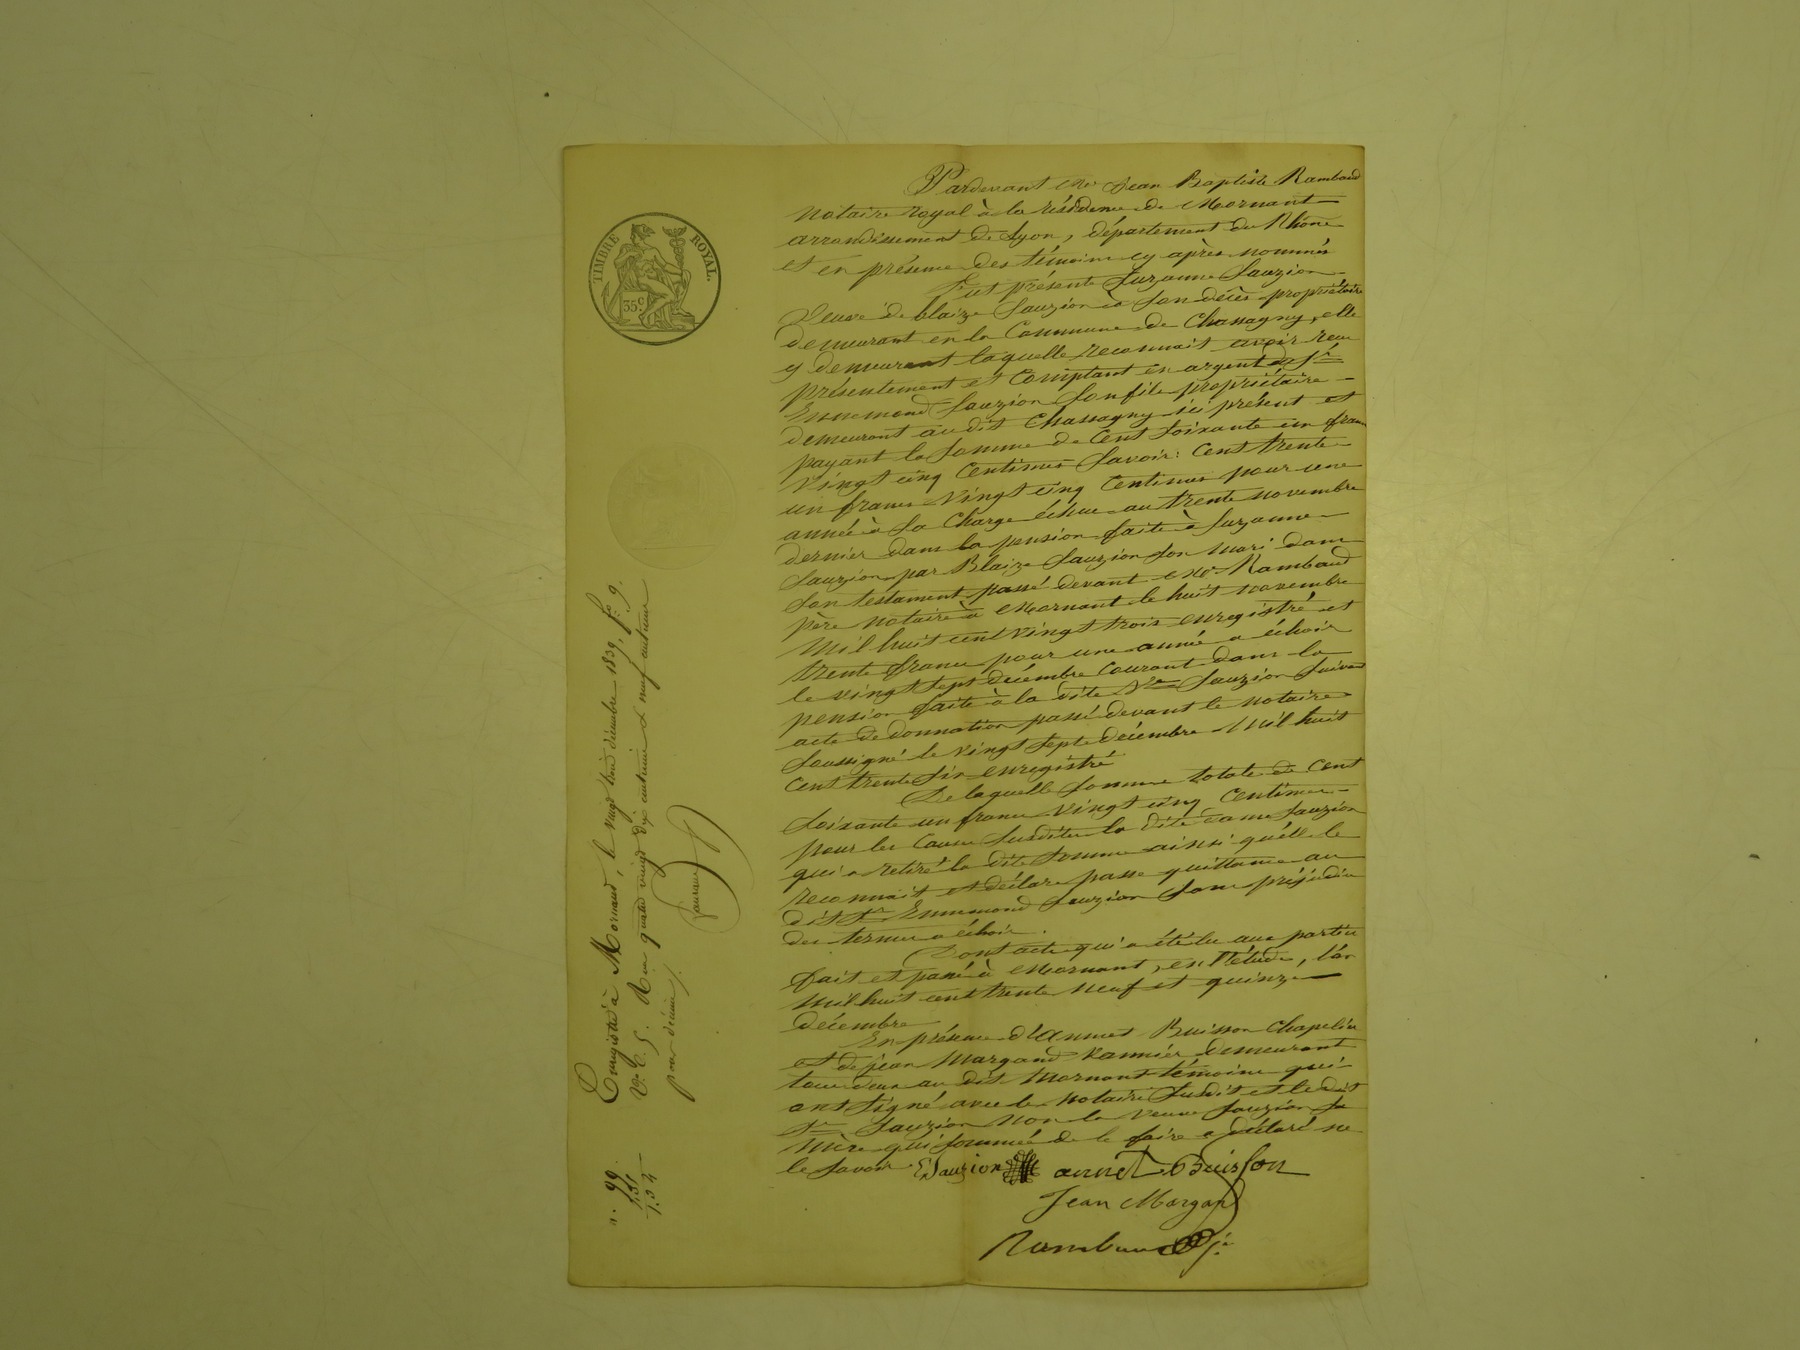 TIMBRE ROYAL
35c
Pardevant Me Jean Baptiste Rambaud
notaire royal à la résidence de Mornant
arrondissement de Lyon, département du Rhône
et en présence des témoins cy après nommés
Fut présente Suzanne Sauzion
Veuve de blaize Sauzion à son décès propriétaire
demeurant en la Commune de Chassagny, elle
y demeurant laquelle reconnait avoir reçu
présentement et Comptant en argent du Sr
Ennemond Sauzion son fils propriétaire
demeurant au dit Chassagny ici présent et
payant la somme de Cent soixante un francs
Vingt cinq Centimes Savoir: Cent trente
un francs Vingt cinq Centimes pour une
année à sa Charge échue au trente novembre
dernier dans la pension faite à Suzanne
Sauzion par Blaize Sauzion son mari dans
son testament passé devant Me Rambaud
père notaire à Mornant le huit novembre
mil huit cent vingt trois enregistré et
trente francs pour une année a échoir
le vingt sept décembre Courant dans la
pension faite à la dite Ve Sauzion suivant
acte de donnation passé devant le notaire
soussigné le vingt sept décembre mil huit
Cent trente six enregistré
De laquelle somme totale de Cent
soixante un francs Vingt cinq Centimes
pour les Causes susdites la dite dame Sauzion
qui a retiré la dite somme ainsi qu'elle le
reconnait et déclare passe quittance au
dit Sr Ennemond Sauzion sans préjudice
des termes a échoir.
Dont acte qui a été lu aux parties
fait et passé à Mornant, en l'étude, l'an
mil huit cent trente neuf et quinze
décembre
En présence d'Annet Buisson Chapelier
et de jean Margand Vannier demeurant
tous deux au dit Mornant témoins qui
ont signé avec le notaire susdit et le dit
Sr Sauzion non la veuve Sauzion sa
mère qui sommée de le faire a déclaré ne
le savoir
E Sauzion annet Buisson
Jean Margand
Rambaud
Enregistré à Mornant, le vingt trois décembre 1839, fo 9.
V. C. 5. Reçu quatre vingt dix centimes & neuf centimes
pour décime
n. 99
1.51
1.34